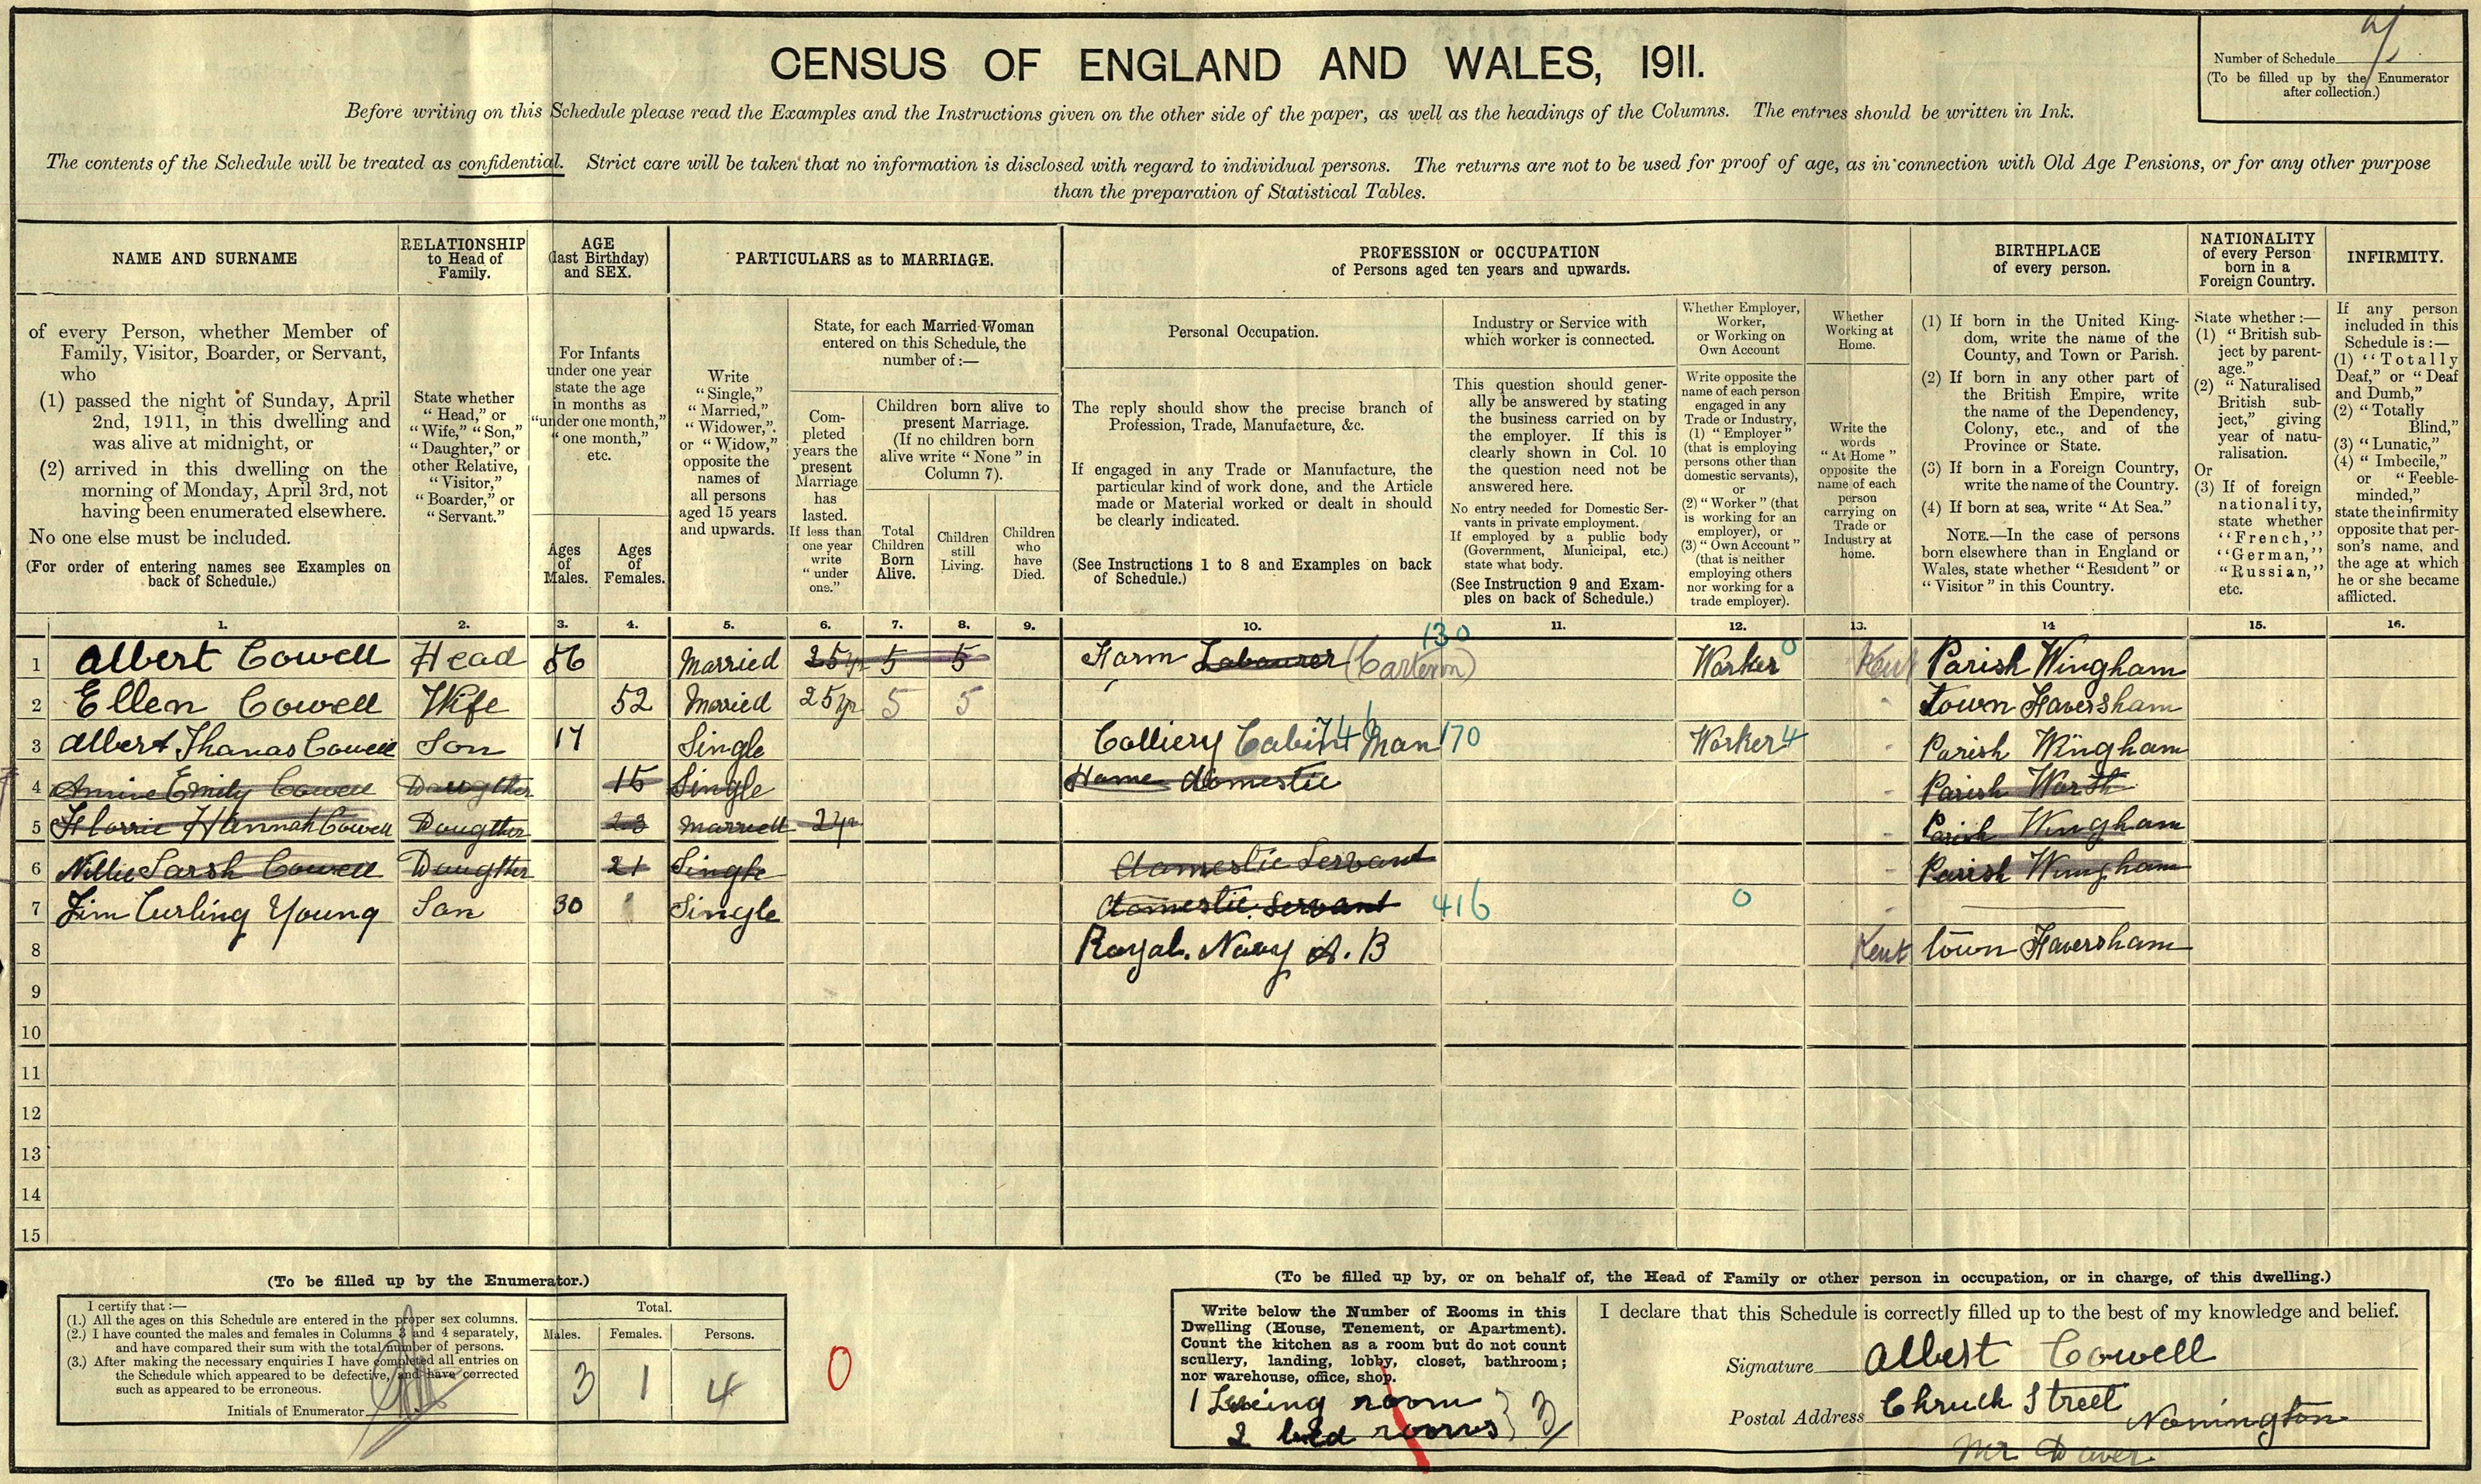 CENSUS OF ENGLAND AND WALES, 1911.
Number of Schedule
(To be filled up by the Enumerator
after collection.)
Before writing on this Schedule please read the Examples and the Instructions given on the other side of the paper, as well as the headings of the Columns. The entries should be written in Ink.
The contents of the Schedule will be treated as confidential. Strict care will be taken that no information is disclosed with regard to individual persons. The returns are not to be used for proof of age, as in connection with Old Age Pensions, or for any other purpose
than the preparation of Statistical Tables.
NAME AND SURNAME
of every Person, whether Member of
Family, Visitor, Boarder, or Servant,
who
(1) passed the night of Sunday, April
2nd, 1911, in this dwelling and
was alive at midnight, or
(2) arrived in this dwelling on the
morning of Monday, April 3rd, not
having been enumerated elsewhere.
No one else must be included.
(For order of entering names see Examples on
back of Schedule.)
RELATIONSHIP
to Head of
Family.
State whether
"Head," or
"Wife," "Son,"
"Daughter," or
other Relative,
"Visitor,"
"Boarder," or
"Servant."
AGE
(last Birthday)
and SEX.
For Infants
under one year
state the age
in months as
"under one month,"
"one month,"
etc.
Ages
of
Males.
Ages
of
Females.
PARTICULARS as to MARRIAGE.
Write
"Single,"
"Married,"
"Widower,"
or "Widow,"
opposite the
names of
all persons
aged 15 years
and upwards.
State, for each Married Woman
entered on this Schedule, the
number of:—
Com-
pleted
years the
present
Marriage
has
lasted.
If less than
one year
write
"under
one."
Children born alive to
present Marriage.
(If no children born
alive write "None" in
Column 7).
Total
Children
Born
Alive.
Children
still
Living.
Children
who
have
Died.
PROFESSION or OCCUPATION
of Persons aged ten years and upwards.
Personal Occupation.
The reply should show the precise branch of
Profession, Trade, Manufacture, &c.
If engaged in any Trade or Manufacture, the
particular kind of work done, and the Article
made or Material worked or dealt in should
be clearly indicated.
(See Instructions 1 to 8 and Examples on back
of Schedule.)
Industry or Service with
which worker is connected.
This question should gener-
ally be answered by stating
the business carried on by
the employer. If this is
clearly shown in Col. 10
the question need not be
answered here.
No entry needed for Domestic Ser-
vants in private employment.
If employed by a public body
(Government, Municipal, etc.)
state what body.
(See Instruction 9 and Exam-
ples on back of Schedule.)
Whether Employer,
Worker,
or Working on
Own Account
Write opposite the
name of each person
engaged in any
Trade or Industry,
(1) "Employer"
(that is employing
persons other than
domestic servants),
or
(2) "Worker" (that
is working for an
employer), or
(3) "Own Account"
(that is neither
employing others
nor working for a
trade employer).
Whether
Working at
Home.
Write the
words
"At Home"
opposite the
name of each
person
carrying on
Trade or
Industry at
home.
BIRTHPLACE
of every person.
(1) If born in the United King-
dom, write the name of the
County, and Town or Parish.
(2) If born in any other part of
the British Empire, write
the name of the Dependency,
Colony, etc., and of the
Province or State.
(3) If born in a Foreign Country,
write the name of the Country.
(4) If born at sea, write "At Sea."
NOTE.—In the case of persons
born elsewhere than in England or
Wales, state whether "Resident" or
"Visitor" in this Country.
NATIONALITY
of every Person
born in a
Foreign Country.
State whether:—
(1) "British sub-
ject by parent-
age."
(2) "Naturalised
British sub-
ject," giving
year of natu-
ralisation.
Or
(3) If of foreign
nationality,
state whether
"French,"
"German,"
"Russian,"
etc.
INFIRMITY.
If any person
included in this
Schedule is:—
(1) "Totally
Deaf," or "Deaf
and Dumb,"
(2) "Totally
Blind,"
(3) "Lunatic,"
(4) "Imbecile,"
or "Feeble-
minded,"
state the infirmity
opposite that per-
son's name, and
the age at which
he or she became
afflicted.
1. 2. 3. 4. 5. 6. 7. 8. 9. 10. 11. 12. 13. 14 15. 16.
130
1 Albert Cowell Head 56 Married 25yr 5 5 Farm Labourer Worker 0 Kent Parish Wingham
2 Ellen Cowell Wife 52 Married 25yr 5 5 town Faversham
3 Albert Thomas Cowell Son 17 Single Colliery Cabin Man 170 Worker 4 Parish Wingham
4 Annie Emily Cowell Daugther 15 Single Home domestic Parish Worth
5 Florrie Hannah Cowell Dougther 23 Married 2yr Parish Wingham
6 Nillie Sarah Cowell Daugther 21 Single domestic Servant Parish Wingham
7 Jim Curling Young Son 30 Single domestic Servant 416 0
8 Royal. Navy A. B Kent town Faversham
9
10
11
12
13
14
15
(To be filled up by the Enumerator.)
I certify that:—
(1.) All the ages on this Schedule are entered in the proper sex columns.
(2.) I have counted the males and females in Columns 3 and 4 separately,
and have compared their sum with the total number of persons.
(3.) After making the necessary enquiries I have completed all entries on
the Schedule which appeared to be defective, and have corrected
such as appeared to be erroneous.
Initials of Enumerator
Total.
Males. Females. Persons.
3 1 4
0
(To be filled up by, or on behalf of, the Head of Family or other person in occupation, or in charge, of this dwelling.)
Write below the Number of Rooms in this
Dwelling (House, Tenement, or Apartment).
Count the kitchen as a room but do not count
scullery, landing, lobby, closet, bathroom;
nor warehouse, office, shop.
1 Liveing room
2 bed rooms } 3
I declare that this Schedule is correctly filled up to the best of my knowledge and belief.
Signature Albert Cowell
Postal Address Chruch Street Nonington
Nr Dover